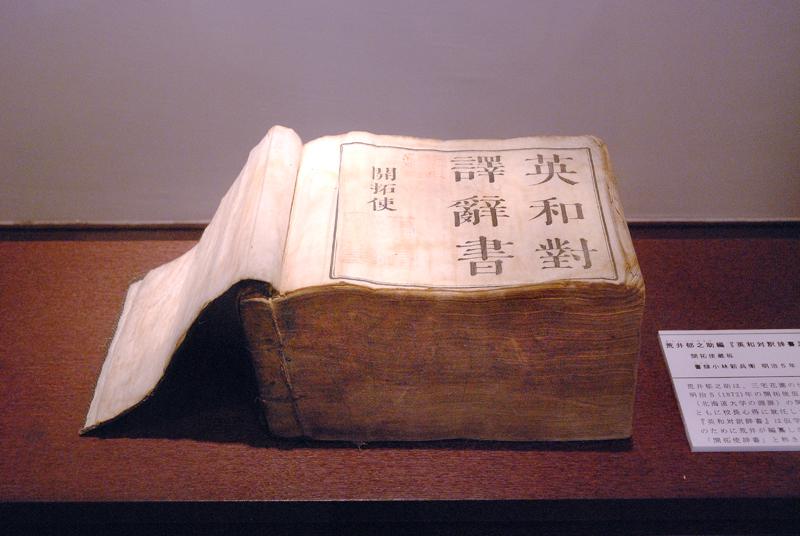 英和對
譯辭書
開拓使
荒井郁之助編『英和対訳辞書』
開拓使蔵板
書肆小林新兵衛 明治5年
荒井郁之助は、三宅花圃の
明治5(1872)年の開拓使仮
(北海道大学の淵源)の
ともに校長心得に就任し
『英和対訳辞書』は仮学
のために荒井が編纂し
「開拓使辞書」と称さ